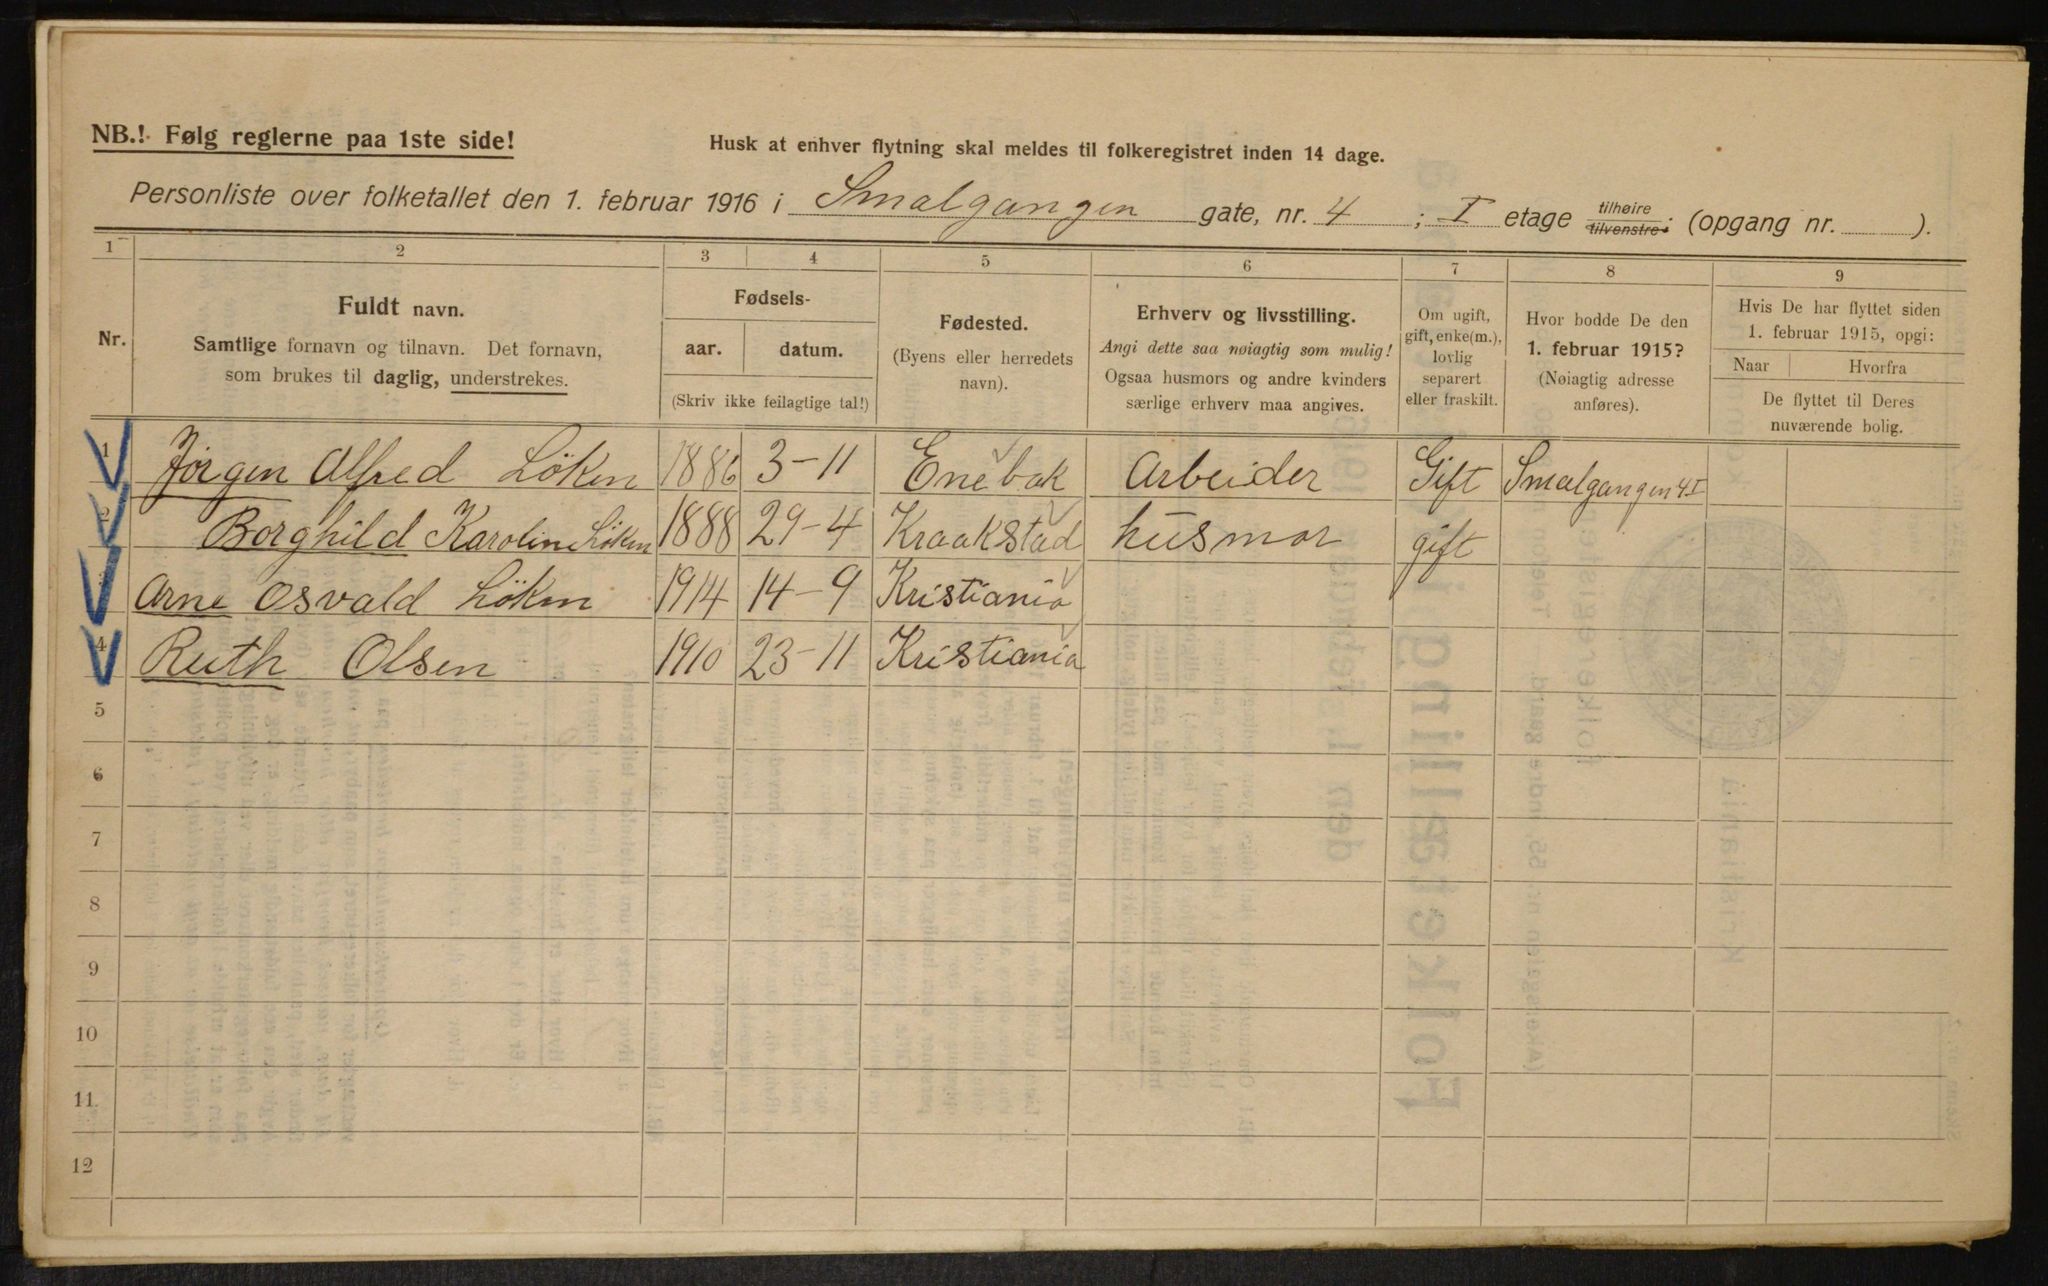 NB.! Følg reglerne paa 1ste side!
Husk at enhver flytning skal meldes til folkeregistret inden 14 dage.
Personliste over folketallet den 1. februar 1916 i Smalgangen gate, nr. 4 ; I etage tilhøire tilvenstre: (opgang nr. ).
1 2 3 4 5 6 7 8 9
Nr.
Fuldt navn.
Samtlige fornavn og tilnavn. Det fornavn,
som brukes til daglig, understrekes.
Fødsels-
aar. datum.
(Skriv ikke feilagtige tal!)
Fødested.
(Byens eller herredets
navn).
Erhverv og livsstilling.
Angi dette saa nøiagtig som mulig!
Ogsaa husmors og andre kvinders
særlige erhverv maa angives.
Om ugift,
gift, enke(m.),
lovlig
separert
eller fraskilt.
Hvor bodde De den
1. februar 1915?
(Nøiagtig adresse
anføres).
Hvis De har flyttet siden
1. februar 1915, opgi:
Naar Hvorfra
De flyttet til Deres
nuværende bolig.
1 Jörgen Alfred Löken 1886 3-11 Enebak Arbeider Gift Smalgangen 4 I
2 Borghild Karoline Löken 1888 29-4 Kraakstad husmor gift
3 Arne Osvald Löken 1914 14-9 Kristiania
4 Ruth Olsen 1910 23-11 Kristiania
5
6
7
8
9
10
11
12